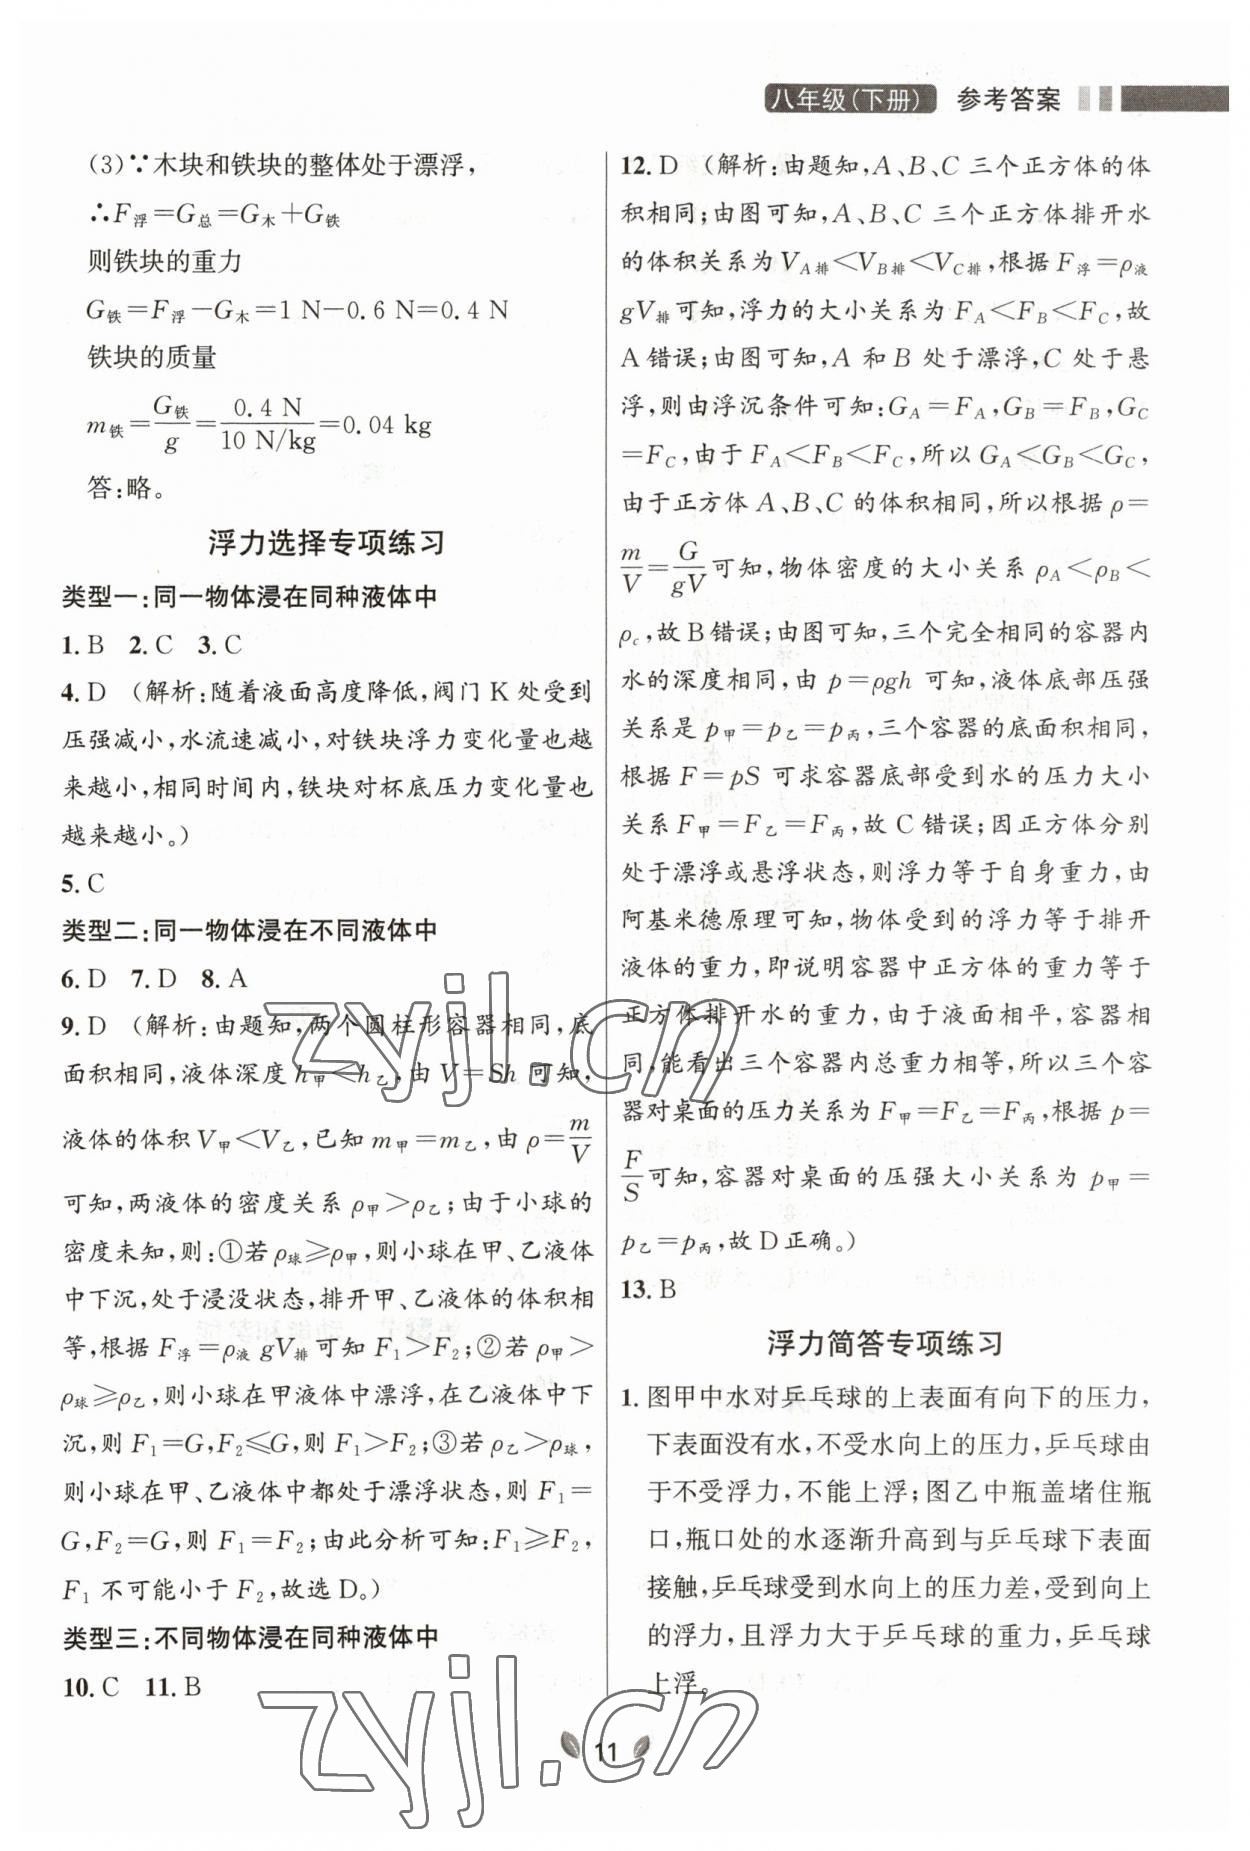 八年级(下册) 参考答案
(3)∵木块和铁块的整体处于漂浮,
∴F浮=G总=G木+G铁
则铁块的重力
G铁=F浮-G木=1 N-0.6 N=0.4 N
铁块的质量
m铁=G铁/g=0.4 N/10 N/kg=0.04 kg
答:略。
浮力选择专项练习
类型一:同一物体浸在同种液体中
1. B 2. C 3. C
4. D (解析:随着液面高度降低,阀门 K 处受到
压强减小,水流速减小,对铁块浮力变化量也越
来越小,相同时间内,铁块对杯底压力变化量也
越来越小。)
5. C
类型二:同一物体浸在不同液体中
6. D 7. D 8. A
9. D (解析:由题知,两个圆柱形容器相同,底
面积相同,液体深度 h甲<h乙,由 V=Sh 可知,
液体的体积 V甲<V乙,已知 m甲=m乙,由 ρ=m/V
可知,两液体的密度关系 ρ甲>ρ乙;由于小球的
密度未知,则:①若 ρ球≥ρ甲,则小球在甲、乙液体
中下沉,处于浸没状态,排开甲、乙液体的体积相
等,根据 F浮=ρ液 gV排 可知 F₁>F₂;②若 ρ甲>
ρ球≥ρ乙,则小球在甲液体中漂浮,在乙液体中下
沉,则 F₁=G,F₂≤G,则 F₁>F₂;③若 ρ乙>ρ球,
则小球在甲、乙液体中都处于漂浮状态,则 F₁=
G,F₂=G,则 F₁=F₂;由此分析可知:F₁≥F₂,
F₁ 不可能小于 F₂,故选 D。)
类型三:不同物体浸在同种液体中
10. C 11. B
12. D (解析:由题知,A、B、C 三个正方体的体
积相同;由图可知,A、B、C 三个正方体排开水
的体积关系为 VA排<VB排<VC排,根据 F浮=ρ液
gV排可知,浮力的大小关系为 FA<FB<FC,故
A 错误;由图可知,A 和 B 处于漂浮,C 处于悬
浮,则由浮沉条件可知:GA=FA,GB=FB,GC
=FC,由于 FA<FB<FC,所以 GA<GB<GC,
由于正方体 A、B、C 的体积相同,所以根据 ρ=
m/V=G/gV可知,物体密度的大小关系 ρA<ρB<
ρc,故 B 错误;由图可知,三个完全相同的容器内
水的深度相同,由 p=ρgh 可知,液体底部压强
关系是 p甲=p乙=p丙,三个容器的底面积相同,
根据 F=pS 可求容器底部受到水的压力大小
关系 F甲=F乙=F丙,故 C 错误;因正方体分别
处于漂浮或悬浮状态,则浮力等于自身重力,由
阿基米德原理可知,物体受到的浮力等于排开
液体的重力,即说明容器中正方体的重力等于
正方体排开水的重力,由于液面相平,容器相
同,能看出三个容器内总重力相等,所以三个容
器对桌面的压力关系为 F甲=F乙=F丙,根据 p=
F/S可知,容器对桌面的压强大小关系为 p甲=
p乙=p丙,故 D 正确。)
13. B
浮力简答专项练习
1. 图甲中水对乒乓球的上表面有向下的压力,
下表面没有水,不受水向上的压力,乒乓球由
于不受浮力,不能上浮;图乙中瓶盖堵住瓶
口,瓶口处的水逐渐升高到与乒乓球下表面
接触,乒乓球受到水向上的压力差,受到向上
的浮力,且浮力大于乒乓球的重力,乒乓球
上浮。
11
zyjl.cn
zyjl.cn